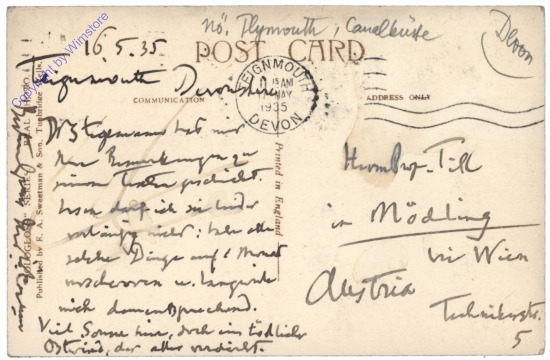 nö. Plymouth, Canalküste
Devon
16.5.35
POST CARD
Teignmouth Devonshire
TEIGNMOUTH
15 AM
MAY
1935
DEVON
COMMUNICATION
ADDRESS ONLY
Dr Stegemann hat mir
Ihre Bemerkungen zu
seinem geschickt.
Lesen darf ich sie leider
vorläufig nicht: habe alle
solche Dinge auf 1 Monat
verschworen u. langweile
mich dementsprechend.
Viel Sonne hier, doch ein tödlicher
Ostwind, der alles verdirbt.
Herrn Prof. Till
in Mödling
bei Wien
Austria
Technikerstr.
5
Printed in England
Published by E. A. Sweetman & Son, Tunbridge
Copyright by Wimstore